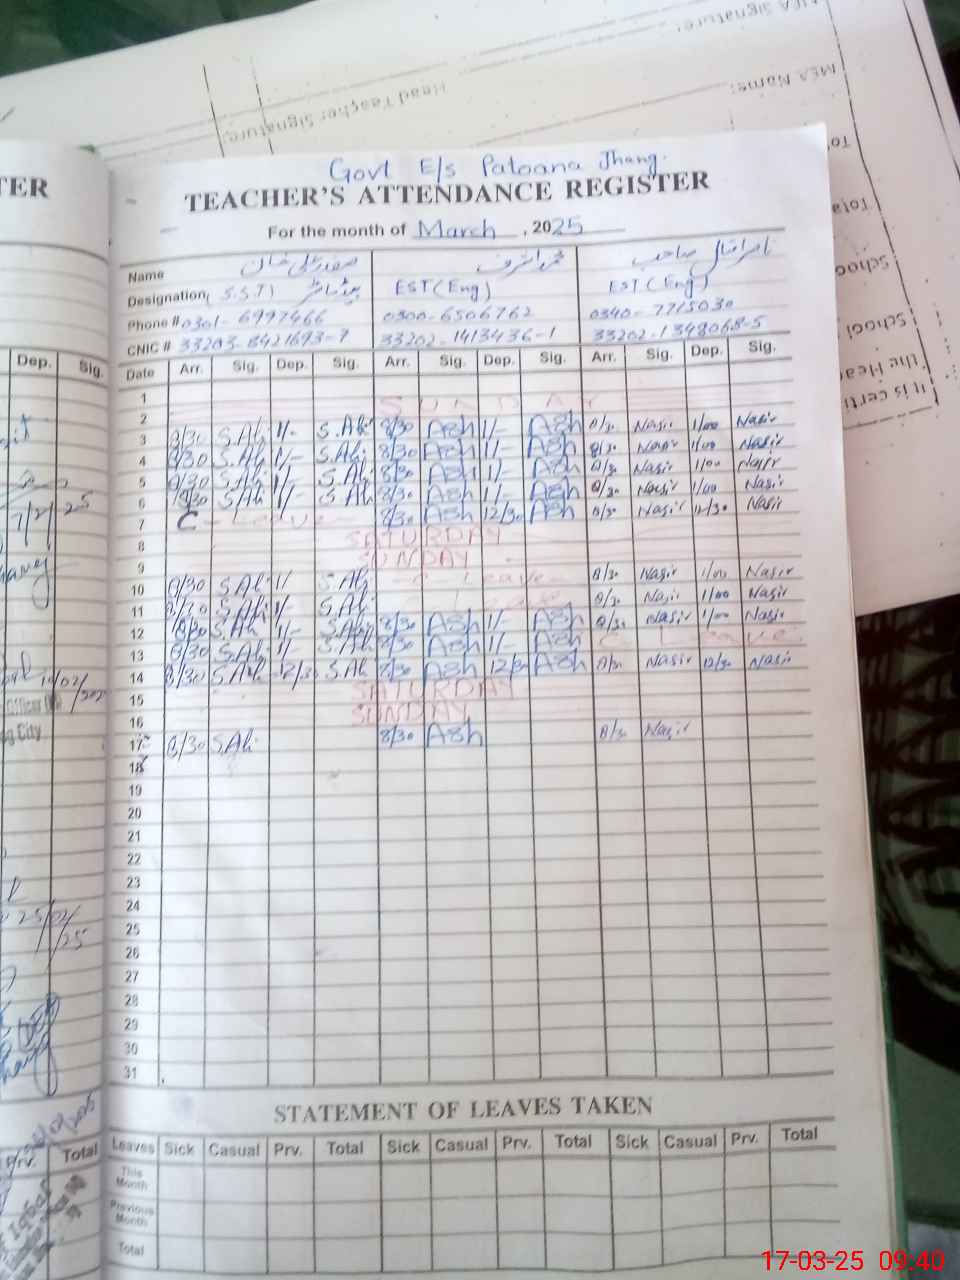 MEA Signature:
MEA Name:
Head Teacher Signature:
It is certi
the Hea
School
Govt E/s Patoana Jhang.
TEACHER'S ATTENDANCE REGISTER
For the month of March, 2025
Name صفدر علی خان محمد اشرف ناصر اقبال صاحب
Designation (S.S.T) ہیڈ ماسٹر EST (Eng) EST (Eng)
Phone # 0301-6997466 0300-6506762 0340-7715030
CNIC # 33203-8421693-7 33202-1413436-1 33202-1348068-5
Date Arr. Sig. Dep. Sig. Arr. Sig. Dep. Sig. Arr. Sig. Dep. Sig.
1
2 SUNDAY
3 8/30 S.Ali 1/- S.Ali 8/30 ASh 1/- ASh 8/30 Nasir 1/00 Nasir
4 8/30 S.Ali 1/- S.Ali 8/30 ASh 1/- ASh 8/30 Nasir 1/00 Nasir
5 8/30 S.Ali 1/- S.Ali 8/30 ASh 1/- ASh 8/30 Nasir 1/00 Nasir
6 8/30 S.Ali 1/- S.Ali 8/30 ASh 1/- ASh 8/30 Nasir 1/00 Nasir
7 C - Leave 8/30 ASh 12/30 ASh 8/30 Nasir 12/30 Nasir
8 SATURDAY
9 SUNDAY
10 8/30 S.Ali 1/ S.Ali C Leave 8/30 Nasir 1/00 Nasir
11 8/30 S.Ali 1/- S.Ali Leave 8/30 Nasir 1/00 Nasir
12 8/30 S.Ali 1/- S.Ali 8/30 ASh 1/- ASh 8/30 Nasir 1/00 Nasir
13 8/30 S.Ali 1/- S.Ali 8/30 ASh 1/- ASh C Leave
14 8/30 S.Ali 12/30 S.Ali 8/30 ASh 12/30 ASh 8/30 Nasir 12/30 Nasir
15 SATURDAY
16 SUNDAY
17 8/30 S.Ali 8/30 ASh 8/30 Nasir
18
19
20
21
22
23
24
25
26
27
28
29
30
31
STATEMENT OF LEAVES TAKEN
Leaves Sick Casual Prv. Total Sick Casual Prv. Total Sick Casual Prv. Total
This Month
Previous Month
Total
TER
Dep. Sig.
City
25/02/25
Prv. Total
17-03-25 09:40